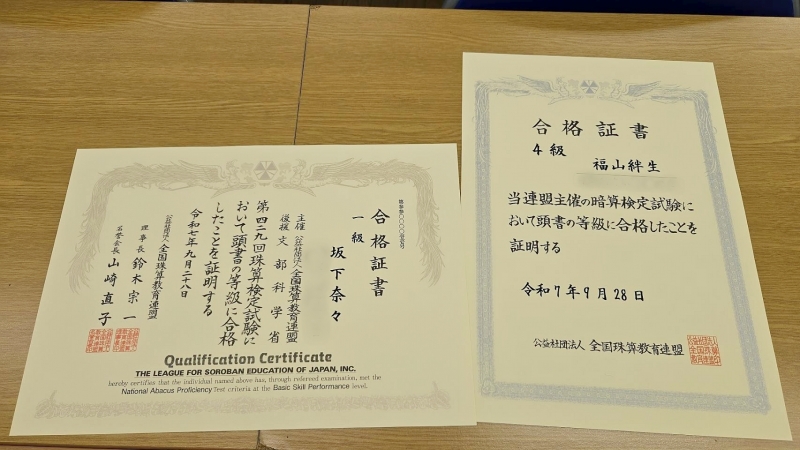 合格証書
一級
坂下奈々
主催 公益社団法人 全国珠算教育連盟
後援 文部科学省
第四二九回珠算検定試験に
おいて頭書の等級に合格
したことを証明する
令和七年九月二十八日
公益社団法人 全国珠算教育連盟
理事長 鈴木宗一
名誉会長 山崎直子
Qualification Certificate
THE LEAGUE FOR SOROBAN EDUCATION OF JAPAN, INC.
hereby certifies that the individual named above has, through refereed examination, met the
National Abacus Proficiency Test criteria at the Basic Skill Performance level.
合格証書
4級
福山絆生
当連盟主催の暗算検定試験に
おいて頭書の等級に合格したことを
証明する
令和7年9月28日
公益社団法人 全国珠算教育連盟